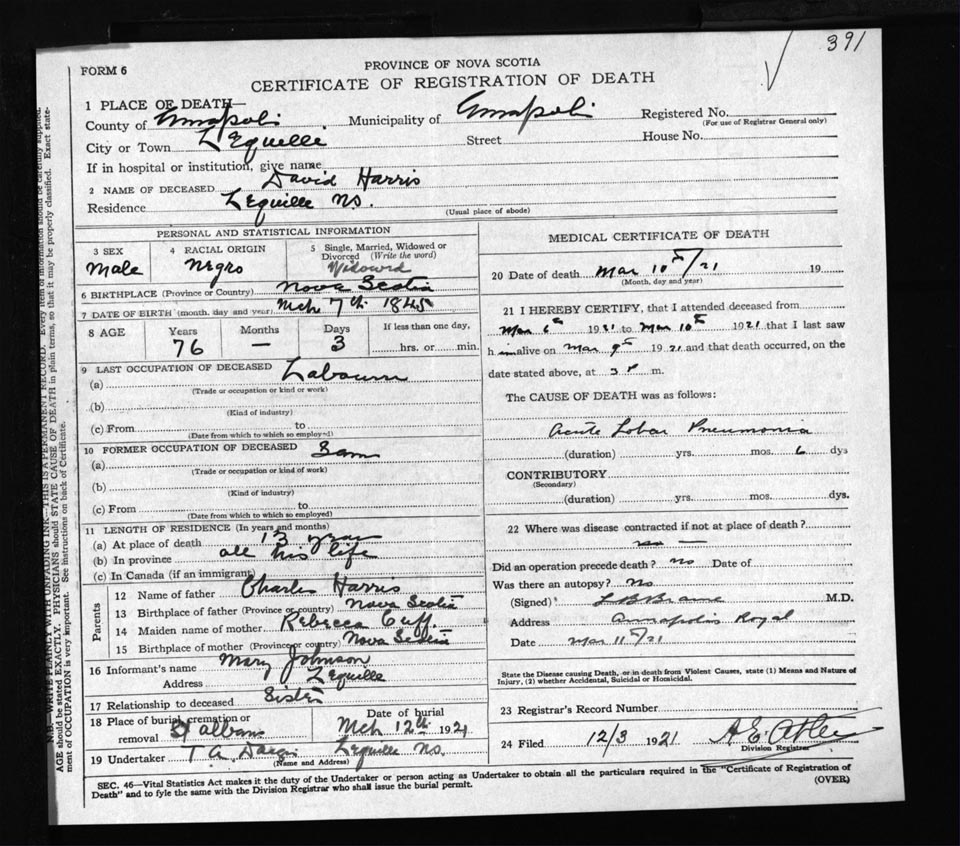 391
FORM 6
PROVINCE OF NOVA SCOTIA
CERTIFICATE OF REGISTRATION OF DEATH
1 PLACE OF DEATH—
County of Annapolis Municipality of Annapolis Registered No.
(For use of Registrar General only)
City or Town L'Equille Street House No.
If in hospital or institution, give name
2 NAME OF DECEASED David Harris
Residence Lequille N.S.
(Usual place of abode)
PERSONAL AND STATISTICAL INFORMATION
3 SEX 4 RACIAL ORIGIN 5 Single, Married, Widowed or Divorced (Write the word)
Male Negro Widowed
6 BIRTHPLACE (Province or Country) Nova Scotia
7 DATE OF BIRTH (month, day and year) Mch 7th 1845
8 AGE Years Months Days If less than one day,
76 — 3 hrs. or min.
9 LAST OCCUPATION OF DECEASED Labourer
(a)
(Trade or occupation or kind or work)
(b)
(Kind of industry)
(c) From to
(Date from which to which so employed)
10 FORMER OCCUPATION OF DECEASED Sam
(a)
(Trade or occupation or kind of work)
(b)
(Kind of industry)
(c) From to
(Date from which to which so employed)
11 LENGTH OF RESIDENCE (In years and months)
(a) At place of death 13 years
(b) In province all his life
(c) In Canada (if an immigrant)
Parents
12 Name of father Charles Harris
13 Birthplace of father (Province or country) Nova Scotia
14 Maiden name of mother Rebecca Cuff
15 Birthplace of mother (Province or country) Nova Scotia
16 Informant's name Mary Johnson
Address Lequille
17 Relationship to deceased Sister
18 Place of burial, cremation or removal St albans Date of burial Mch 12th 1921
19 Undertaker T. A. Lequille N.S.
(Name and Address)
MEDICAL CERTIFICATE OF DEATH
20 Date of death Mar 10th/21 19
(Month, day and year)
21 I HEREBY CERTIFY, that I attended deceased from
Mar 6th 1921 to Mar 10th 1921 that I last saw
h im alive on Mar 9th 1921 and that death occurred, on the
date stated above, at 3 P m.
The CAUSE OF DEATH was as follows:
Acute Lobar Pneumonia
(duration) yrs. mos. 6 dys
CONTRIBUTORY
(Secondary)
(duration) yrs. mos. dys.
22 Where was disease contracted if not at place of death?
no —
Did an operation precede death? no Date of
Was there an autopsy? No
(Signed) L B Braine M.D.
Address Annapolis Royal
Date Mar 11th/21
State the Disease causing Death, or in death from Violent Causes, state (1) Means and Nature of
Injury, (2) whether Accidental, Suicidal or Homicidal.
23 Registrar's Record Number
24 Filed 12/3 1921 A. E. Atlee
Division Registrar
SEC. 46—Vital Statistics Act makes it the duty of the Undertaker or person acting as Undertaker to obtain all the particulars required in the "Certificate of Registration of
Death" and to fyle the same with the Division Registrar who shall issue the burial permit. (OVER)
N.B.—WRITE PLAINLY WITH UNFADING INK—THIS IS A PERMANENT RECORD. Every item of information should be carefully supplied.
AGE should be stated EXACTLY. PHYSICIANS should STATE CAUSE OF DEATH in plain terms, so that it may be properly classified. Exact state-
ment of OCCUPATION is very important. See instructions on back of Certificate.